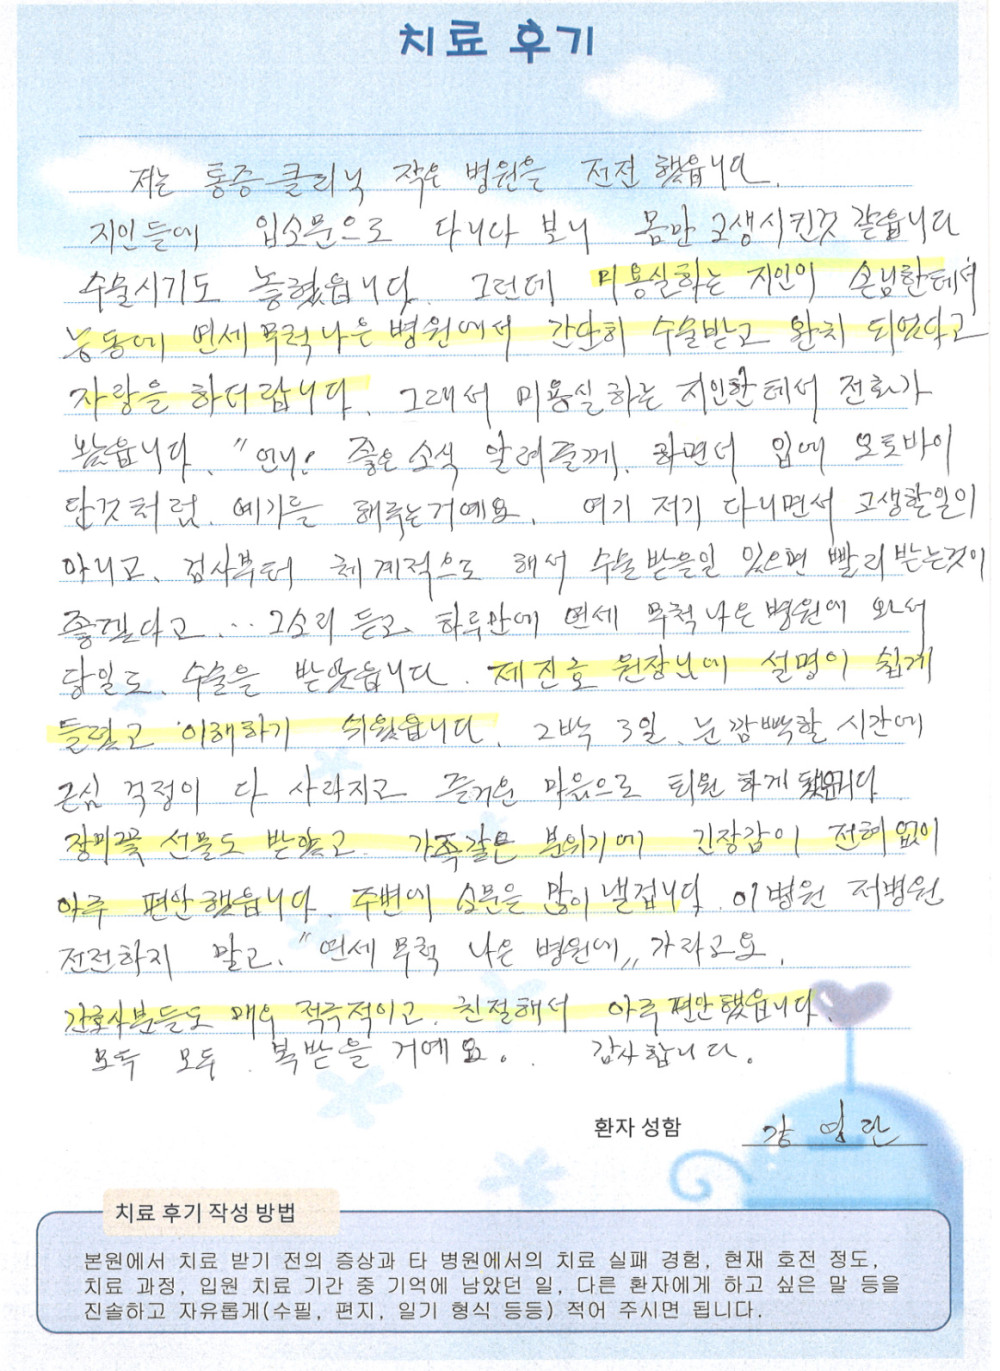 치료 후기
저는 통증클리닉 작은 병원을 전전했읍니다.
지인들에 입소문으로 다니다 보니 몸만 고생시킨것 같읍니다
수술시기도 놓쳤읍니다. 그런데 미용실하는 지인이 손님한테서
능동에 연세무척나은병원에서 간단히 수술받고 완치 되었다고
자랑을 하더랍니다. 그래서 미용실하는 지인한테서 전화가
왔읍니다. "언니! 좋은소식 알려줄께. 하면서 입에 오토바이
단것처럼. 예기를 해주는거예요. 여기 저기 다니면서 고생할일이
아니고. 검사부터 체계적으로 해서 수술받을일 있으면 빨리받는것이
좋겠다고... 그소리 듣고. 하루만에 연세 무척나은병원에 와서
당일로. 수술을 받았읍니다. 제진호 원장님에 설명이 쉽게
들렸고 이해하기 쉬웠읍니다. 2박 3일. 눈깜빡할 시간에
근심 걱정이 다 사라지고 즐거운 마음으로 퇴원 하게 됐읍니다
장미꽃 선물도 받았고. 가족같은 분위기에 긴장감이 전혀없이
아주 편안했읍니다. 주변에 소문을 많이낼겁니다. 이병원 저병원
전전하지 말고. "연세무척 나은 병원에" 가라고요.
간호사분들도 매우 적극적이고. 친절해서 아주편안했읍니다.
모두 모두 복받을 거예요. 감사합니다.
환자 성함 강영란
치료 후기 작성 방법
본원에서 치료 받기 전의 증상과 타 병원에서의 치료 실패 경험, 현재 호전 정도,
치료 과정, 입원 치료 기간 중 기억에 남았던 일, 다른 환자에게 하고 싶은 말 등을
진솔하고 자유롭게(수필, 편지, 일기 형식 등등) 적어 주시면 됩니다.